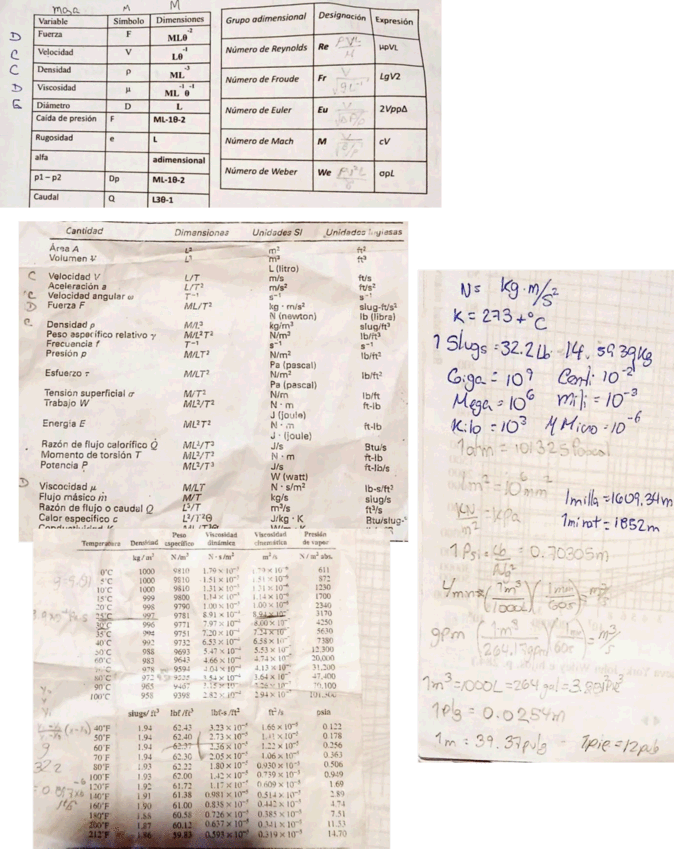 masa M M
Variable Símbolo Dimensiones
D Fuerza F MLθ-2
C Velocidad V Lθ-1
C Densidad ρ ML-3
D Viscosidad μ ML-1θ-1
E Diámetro D L
Caída de presión F ML-1θ-2
Rugosidad e L
alfa adimensional
p1 – p2 Dp ML-1θ-2
Caudal Q L3θ-1
Grupo adimensional Designación Expresión
Número de Reynolds Re μρVL
Número de Froude Fr LgV2
Número de Euler Eu 2VρpΔ
Número de Mach M cV
Número de Weber We σρL
Cantidad Dimensiones Unidades SI Unidades inglesas
Área A L² m² ft²
Volumen V L³ m³ ft³
L (litro)
C Velocidad V L/T m/s ft/s
Aceleración a L/T² m/s² ft/s²
C Velocidad angular ω T⁻¹ s⁻¹ s⁻¹
D Fuerza F ML/T² kg · m/s² slug-ft/s²
N (newton) lb (libra)
C Densidad ρ M/L³ kg/m³ slug/ft³
Peso específico relativo γ M/L²T² N/m³ lb/ft³
Frecuencia f T⁻¹ s⁻¹ s⁻¹
Presión p M/LT² N/m² lb/ft²
Pa (pascal)
Esfuerzo τ M/LT² N/m² lb/ft²
Pa (pascal)
Tension superficial σ M/T² N/m lb/ft
Trabajo W ML²/T² N · m ft-lb
J (joule)
Energía E ML²T² N · m ft-lb
J · (joule)
Razón de flujo calorífico Q̇ ML²/T³ J/s Btu/s
Momento de torsión T ML²/T² N · m ft-lb
Potencia P ML²/T³ J/s ft-lb/s
W (watt)
D Viscocidad μ M/LT N · s/m² lb-s/ft²
Flujo másico ṁ M/T kg/s slug/s
Razón de flujo o caudal Q L³/T m³/s ft³/s
Calor específico c L²/T²Θ J/kg · K Btu/slug-
Peso Viscosidad Viscosidad Presión
Temperatura Densidad específico dinámica cinemática de vapor
kg/m³ N/m³ N·s/m² m²/s N/m² abs.
0°C 1000 9810 1.79 × 10⁻³ 611
5°C 1000 9810 1.51 × 10⁻³ 1.51 × 10⁻⁶ 872
10°C 1000 9810 1.31 × 10⁻³ 1.31 × 10⁻⁶ 1230
15°C 999 9800 1.14 × 10⁻³ 1.14 × 10⁻⁶ 1700
20°C 998 9790 1.00 × 10⁻³ 1.00 × 10⁻⁶ 2340
997 9781 8.91 × 10⁻⁴ 3170
30°C 996 9771 7.97 × 10⁻⁴ 8.00 × 10⁻⁷ 4250
35°C 994 9751 7.20 × 10⁻⁴ 7.24 × 10⁻⁷ 5630
40°C 992 9732 6.53 × 10⁻⁴ 6.58 × 10⁻⁷ 7380
50°C 988 9693 5.47 × 10⁻⁴ 5.53 × 10⁻⁷ 12,300
60°C 983 9643 4.66 × 10⁻⁴ 4.74 × 10⁻⁷ 20,000
70°C 978 9594 4.04 × 10⁻⁴ 4.13 × 10⁻⁷ 31,200
80°C 972 3.54 × 10⁻⁴ 3.64 × 10⁻⁷ 47,400
90°C 965 9467
100°C 958 9398 2.82 × 10⁻⁴ 2.94 × 10⁻⁷
slugs/ft³ lbf/ft³ lbf-s/ft² ft²/s psia
40°F 1.94 62.43 3.23 × 10⁻⁵ 1.66 × 10⁻⁵ 0.122
50°F 1.94 62.40 2.73 × 10⁻⁵ 1.41 × 10⁻⁵ 0.178
60°F 1.94 62.37 2.36 × 10⁻⁵ 1.22 × 10⁻⁵ 0.256
70°F 1.94 62.30 2.05 × 10⁻⁵ 1.06 × 10⁻⁵ 0.363
80°F 1.93 62.22 1.80 × 10⁻⁵ 0.930 × 10⁻⁵ 0.506
100°F 1.93 62.00 1.42 × 10⁻⁵ 0.739 × 10⁻⁵ 0.949
120°F 1.92 61.72 1.17 × 10⁻⁵ 0.609 × 10⁻⁵ 1.69
140°F 1.91 61.38 0.981 × 10⁻⁵ 0.514 × 10⁻⁵ 2.89
160°F 1.90 61.00 0.838 × 10⁻⁵ 0.442 × 10⁻⁵ 4.74
180°F 1.88 60.58 0.726 × 10⁻⁵ 0.385 × 10⁻⁵ 7.51
200°F 1.87 60.12 0.637 × 10⁻⁵ 0.341 × 10⁻⁵ 11.53
212°F 1.86 59.83 0.593 × 10⁻⁵ 0.319 × 10⁻⁵ 14.70
N= kg·m/s²
K = 273 + °C
1 Slugs = 32.2 Lb 14.5939 Kg
Giga = 10⁹ Centi 10⁻²
Mega = 10⁶ mili = 10⁻³
Kilo = 10³ M Micro = 10⁻⁶
1 atm = 101325 pascal
1m² = 10⁶ mm²
1 milla = 1609.34m
KN/m² = KPa
1 minot = 1852m
1 Psi = = 0.70305m
(1m³/1000L) (1min/60s) = m³/s
gpm (1m³/264.17gpm) (1m/60s) = m³/s
1m³ = 1000L = 264 gal =
1 Plg = 0.0254m
1m = 39.37pulg 1pie = 12pulg